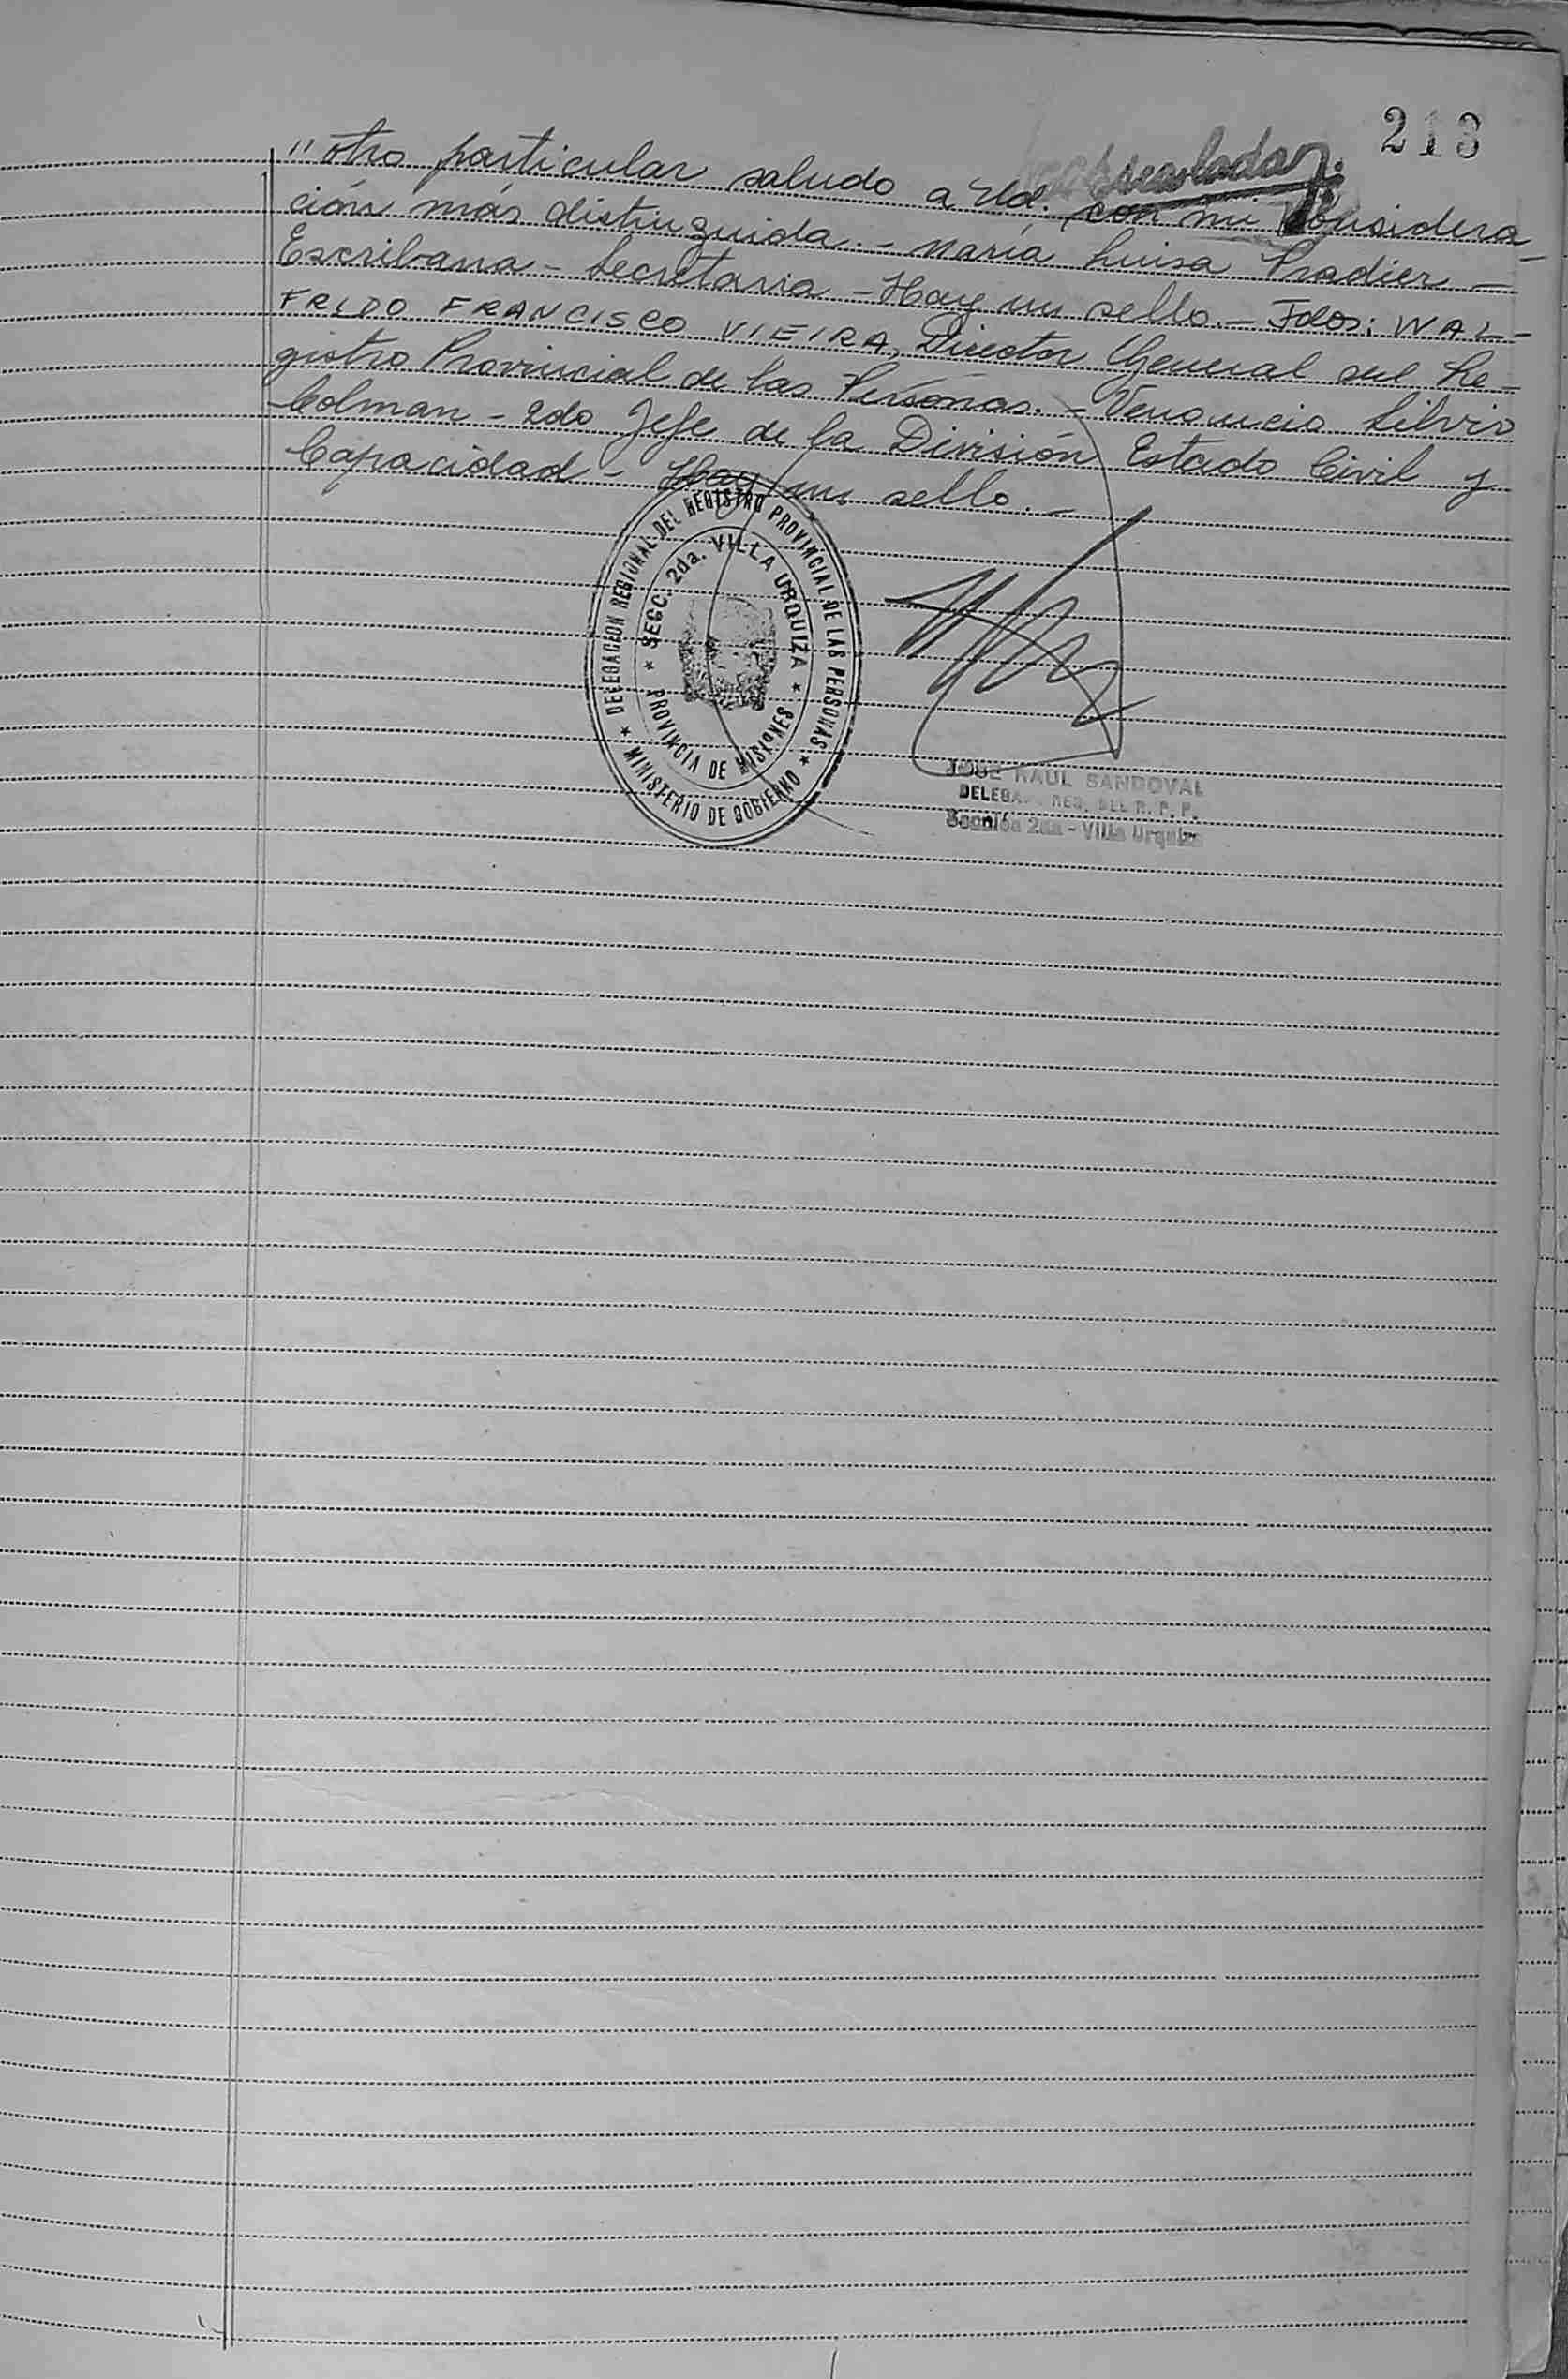 213
"otro particular saludo a Ud. con mi considera-
ción más distinguida.- María Luisa Pradier -
Escribana - Secretaria - Hay un sello.- Fdos: WAL-
FREDO FRANCISCO VIEIRA, Director General del Re-
gistro Provincial de las Personas.- Venancio Silvio
Colman - 2do Jefe de la División Estado Civil y
Capacidad - Hay un sello.-
DELEGACION REGIONAL DEL REGISTRO PROVINCIAL DE LAS PERSONAS
★ MINISTERIO DE GOBIERNO ★
★ SECC. 2da. VILLA URQUIZA ★
PROVINCIA DE MISIONES
JOSE RAUL SANDOVAL
REG. DEL R. P. P.
Sección 2da - Villa Urquiza